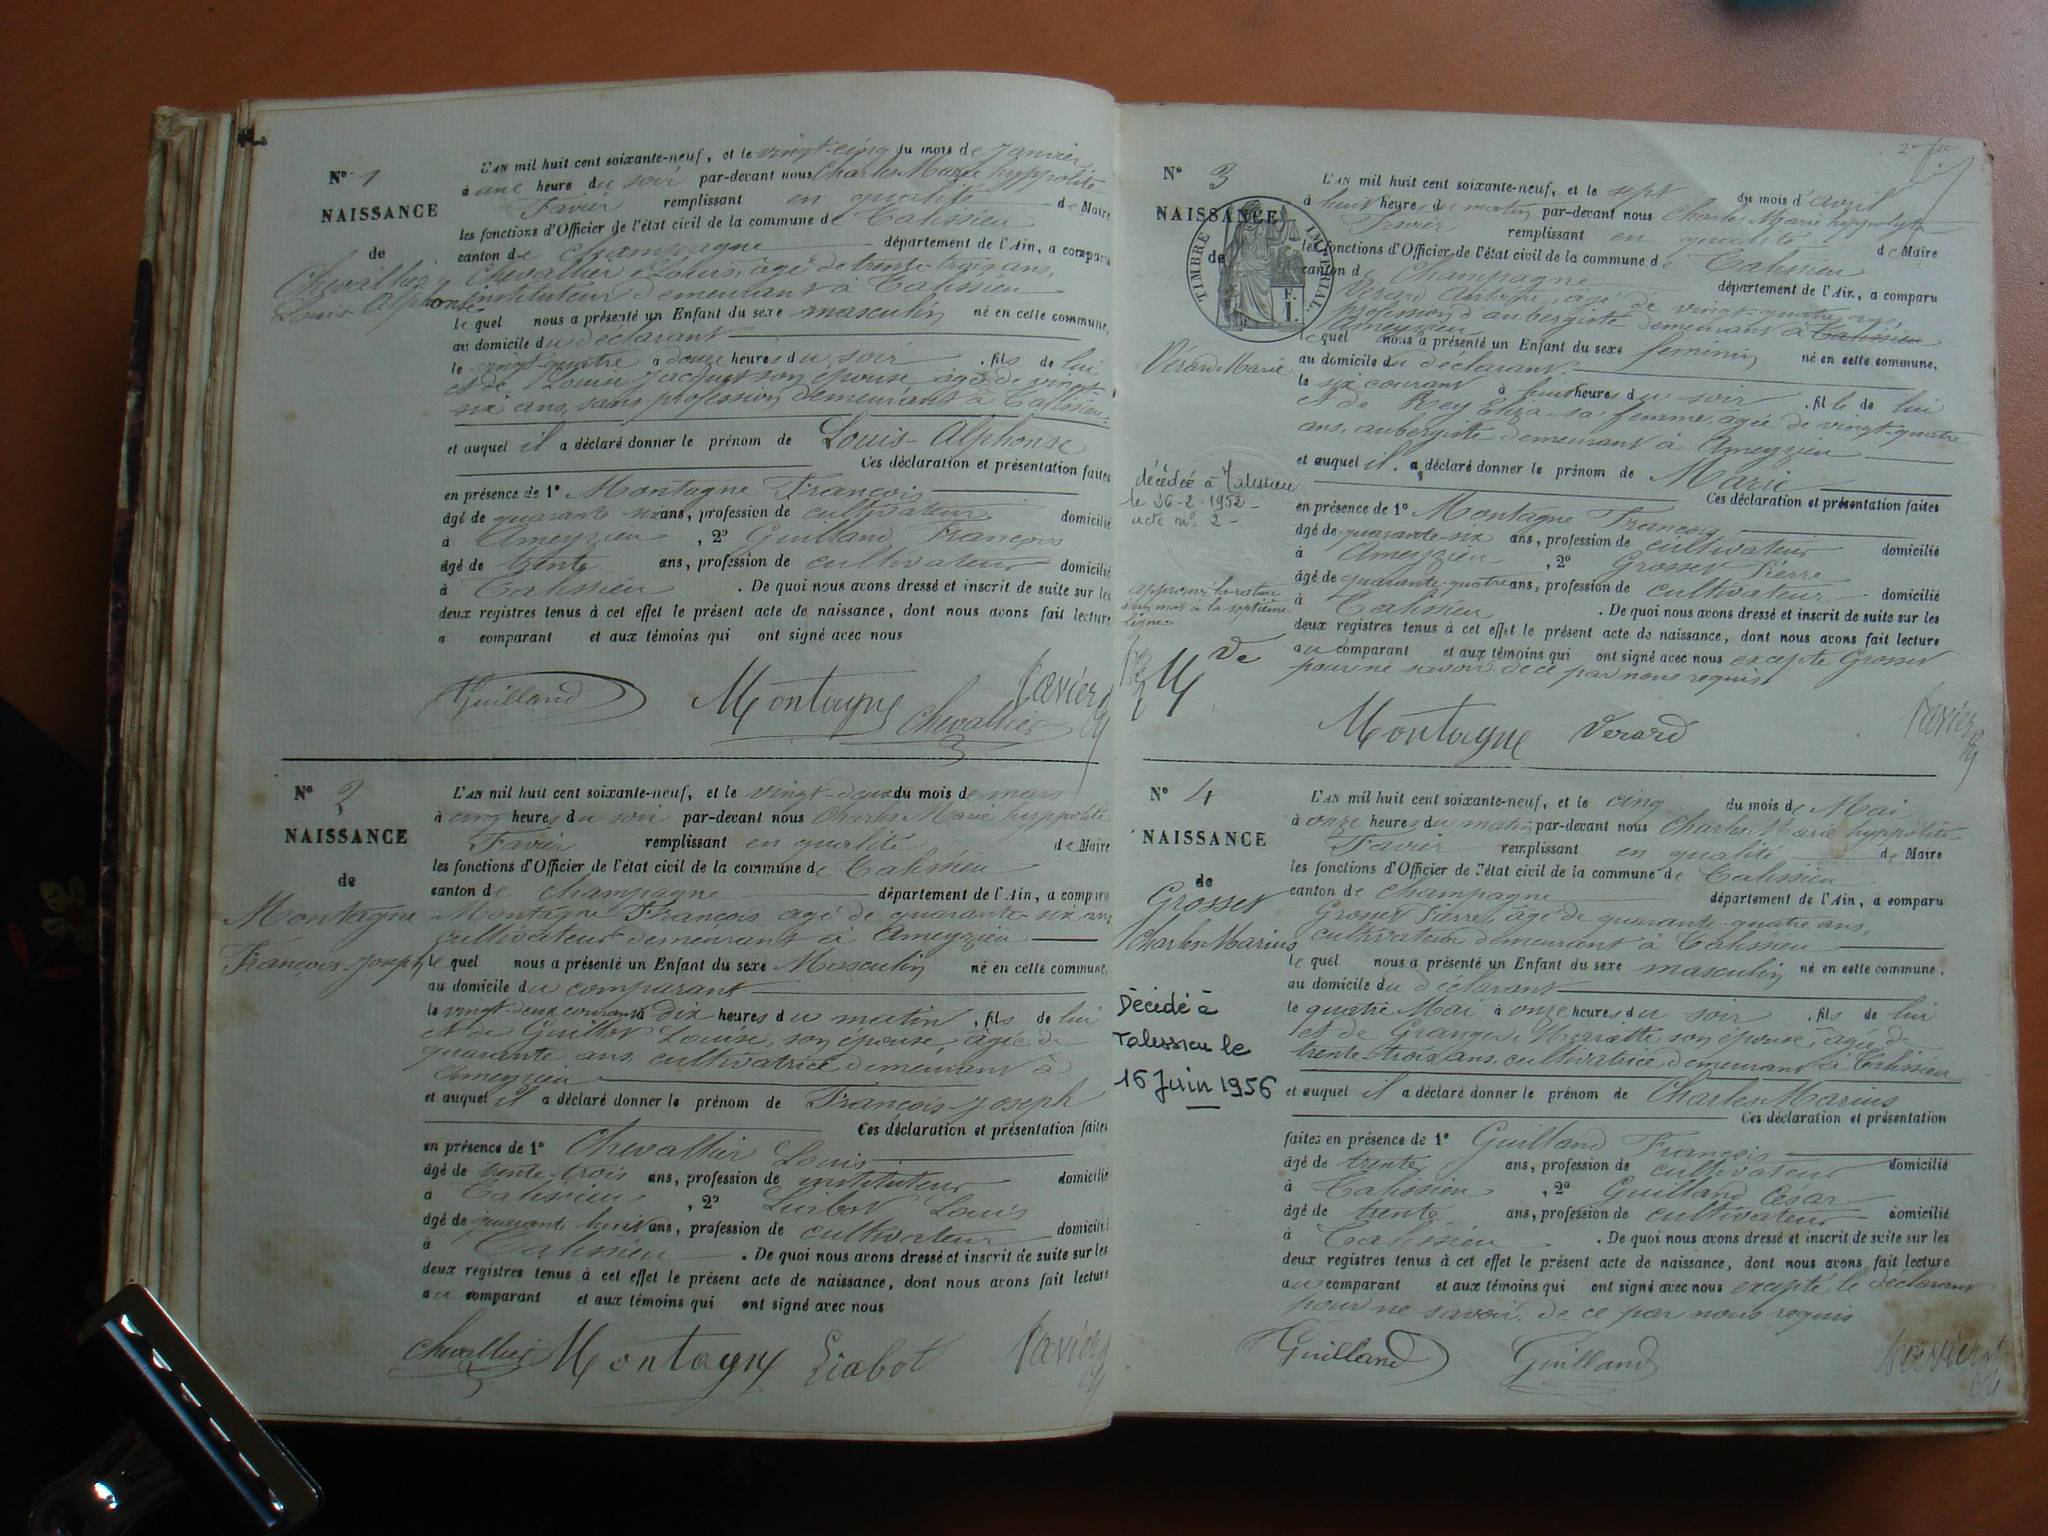 N° 1
NAISSANCE
de
Chevallier
Louis Alphonse
L'AN mil huit cent soixante-neuf, et le vingt-cinq du mois de Janvier
à une heure du soir par-devant nous Charles Marie hyppolite
Favier remplissant en qualité de Maire
les fonctions d'Officier de l'état civil de la commune de Talissieu
canton de Champagne département de l'Ain, a comparu
Chevallier Louis, âgé de trente trois ans,
instituteur demeurant à Talissieu
le quel nous a présenté un Enfant du sexe masculin né en cette commune,
au domicile du déclarant
le vingt-quatre à douze heures du soir, fils de lui
et de Louise Jacquet son épouse âgée de vingt-
six ans, sans profession demeurant à Talissieu
et auquel il a déclaré donner le prénom de Louis-Alphonse
Ces déclaration et présentation faites
en présence de 1° Montagne François
âgé de quarante-six ans, profession de cultivateur domicilié
à Ameyzieu, 2° Guilland François
âgé de trente ans, profession de cultivateur domicilié
à Talissieu. De quoi nous avons dressé et inscrit de suite sur les
deux registres tenus à cet effet le présent acte de naissance, dont nous avons fait lecture
a comparant et aux témoins qui ont signé avec nous
Guilland Montagne Chevallier Favier
N° 2
NAISSANCE
de
Montagne
François-Joseph
L'AN mil huit cent soixante-neuf, et le vingt-deux du mois de mars
à cinq heures du soir par-devant nous Charles Marie hyppolite
Favier remplissant en qualité de Maire
les fonctions d'Officier de l'état civil de la commune de Talissieu
canton de Champagne département de l'Ain, a comparu
Montagne François agé de quarante-six ans
cultivateur demeurant à Ameyzieu
le quel nous a présenté un Enfant du sexe Masculin né en cette commune,
au domicile du comparant
le vingt-deux courant à dix heures du matin, fils de lui
et de Guillot Louise, son épouse, âgée de
quarante ans, cultivatrice demeurant à
Ameyzieu
et auquel il a déclaré donner le prénom de François-Joseph
Ces déclaration et présentation faites
en présence de 1° Chevallier Louis
âgé de trente-trois ans, profession de instituteur domicilié
à Talissieu, 2° Louis
âgé de quarante huit ans, profession de cultivateur domicilié
à Talissieu. De quoi nous avons dressé et inscrit de suite sur les
deux registres tenus à cet effet le présent acte de naissance, dont nous avons fait lecture
au comparant et aux témoins qui ont signé avec nous
Chevallier Montagne Favier
N° 3
NAISSANCE
de
TIMBRE IMPERIAL.
F.
1.
Vérard Marie
décédée à Talissieu
le 26-2-1952
acte n° 2-
approuvé la rature
d'un mot à la septième
ligne
M Ve
L'AN mil huit cent soixante-neuf, et le sept du mois d'avril
à huit heure du matin par-devant nous Charles Marie hyppolyte
Favier remplissant en qualité de Maire
les fonctions d'Officier de l'état civil de la commune de Talissieu
canton de Champagne département de l'Ain, a comparu
Vérard Antoine, agé de vingt-quatre ans,
profession d'aubergiste demeurant à Talissieu
Ameyzieu
le quel nous a présenté un Enfant du sexe feminin né en cette commune,
au domicile du déclarant
le six courant à huit heures du soir, fille de lui
et de Rey Eliza sa femme, agée de vingt-quatre
ans, aubergiste demeurant à Ameyzieu
et auquel il a déclaré donner le prénom de Marie
Ces déclaration et présentation faites
en présence de 1° Montagne François
âgé de quarante-six ans, profession de cultivateur domicilié
à Ameyzieu, 2° Grosset Pierre
âgé de quarante-quatre ans, profession de cultivateur domicilié
à Talissieu. De quoi nous avons dressé et inscrit de suite sur les
deux registres tenus à cet effet le présent acte de naissance, dont nous avons fait lecture
au comparant et aux témoins qui ont signé avec nous excepté Grosset
pour ne savoir de ce par nous requis
Montagne Verard Favier
N° 4
NAISSANCE
de
Grosset
Charles Marius
Décédé à
Talissieu le
16 Juin 1956
L'AN mil huit cent soixante-neuf, et le cinq du mois de Mai
à onze heures du matin par-devant nous Charles Marie hyppolite
Favier remplissant en qualité de Maire
les fonctions d'Officier de l'état civil de la commune de Talissieu
canton de Champagne département de l'Ain, a comparu
Grosset Pierre, âgé de quarante-quatre ans,
cultivateur demeurant à Talissieu
le quel nous a présenté un Enfant du sexe masculin né en cette commune,
au domicile du déclarant
le quatre Mai à onze heures du soir, fils de lui
et de Granger Mariette son épouse, âgée de
trente-trois ans, cultivatrice demeurant à Talissieu
et auquel il a déclaré donner le prénom de Charles Marius
Ces déclaration et présentation
faites en présence de 1° Guilland François
âgé de trente ans, profession de cultivateur domicilié
à Talissieu, 2° Guilland César
âgé de trente ans, profession de cultivateur domicilié
à Talissieu. De quoi nous avons dressé et inscrit de suite sur les
deux registres tenus à cet effet le présent acte de naissance, dont nous avons fait lecture
au comparant et aux témoins qui ont signé avec nous excepté le déclarant
pour ne savoir, de ce par nous requis
Guilland Guilland Favier